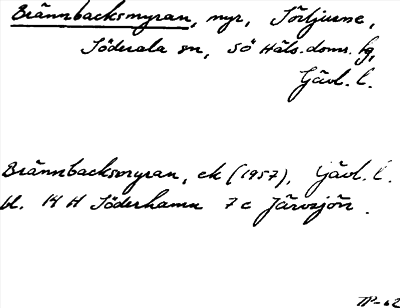 Brännbacksmyran, myr, Sörljusne,
Söderala sn, Sö Häls. doms. fg,
Gävl. l.
Brännbacksmyran, ek (1957), Gävl. l.
bl. 14 H Söderhamn 7 c Järvsjön.
TP-62